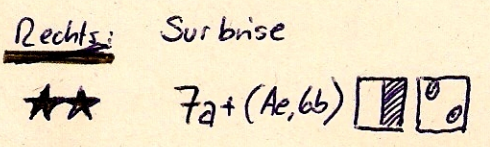 Rechts: Surbrise
7a+ (Ae, bb)